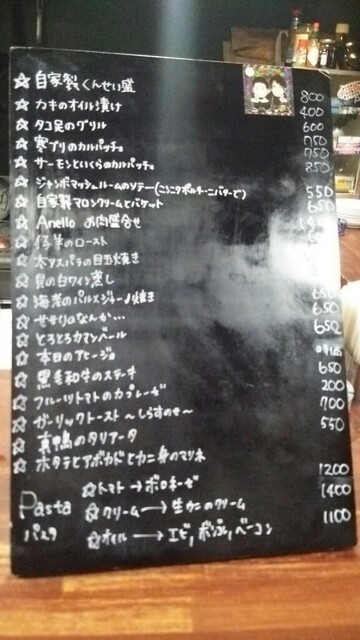 ☆ 自家製くんせい盛 800
☆ カキのオイル漬け 400
☆ タコ足のグリル 600
☆ 寒ブリのカルパッチョ 750
☆ サーモンといくらのカルパッチョ 750
850
☆ ジャンボマッシュルームのソテー(ニンニクポルチーニバターで) 550
☆ 自家製マロンクリームとバケット 650
☆ Anello お肉盛合せ
☆ 仔羊のロースト
☆ 木アスパラの目玉焼き
☆ 貝の白ワイン蒸し
☆ 海老のパルメジャーノ焼き 650
☆ せせりのなんか… 650
☆ とろとろカマンベール 650
☆ 本日のアヒージョ 時価
☆ 黒毛和牛のステーキ 650
☆ フルーツトマトのカプレーゼ 200
☆ ガーリックトースト〜しらすのせ〜 700
☆ 真鴨のタリアータ 550
☆ ホタテとアボカドとカニ身のマリネ
Pasta パスタ
☆ トマト → ボロネーゼ 1200
☆ クリーム → 生カニのクリーム 1400
☆ オイル → エビ, ベーコン 1100